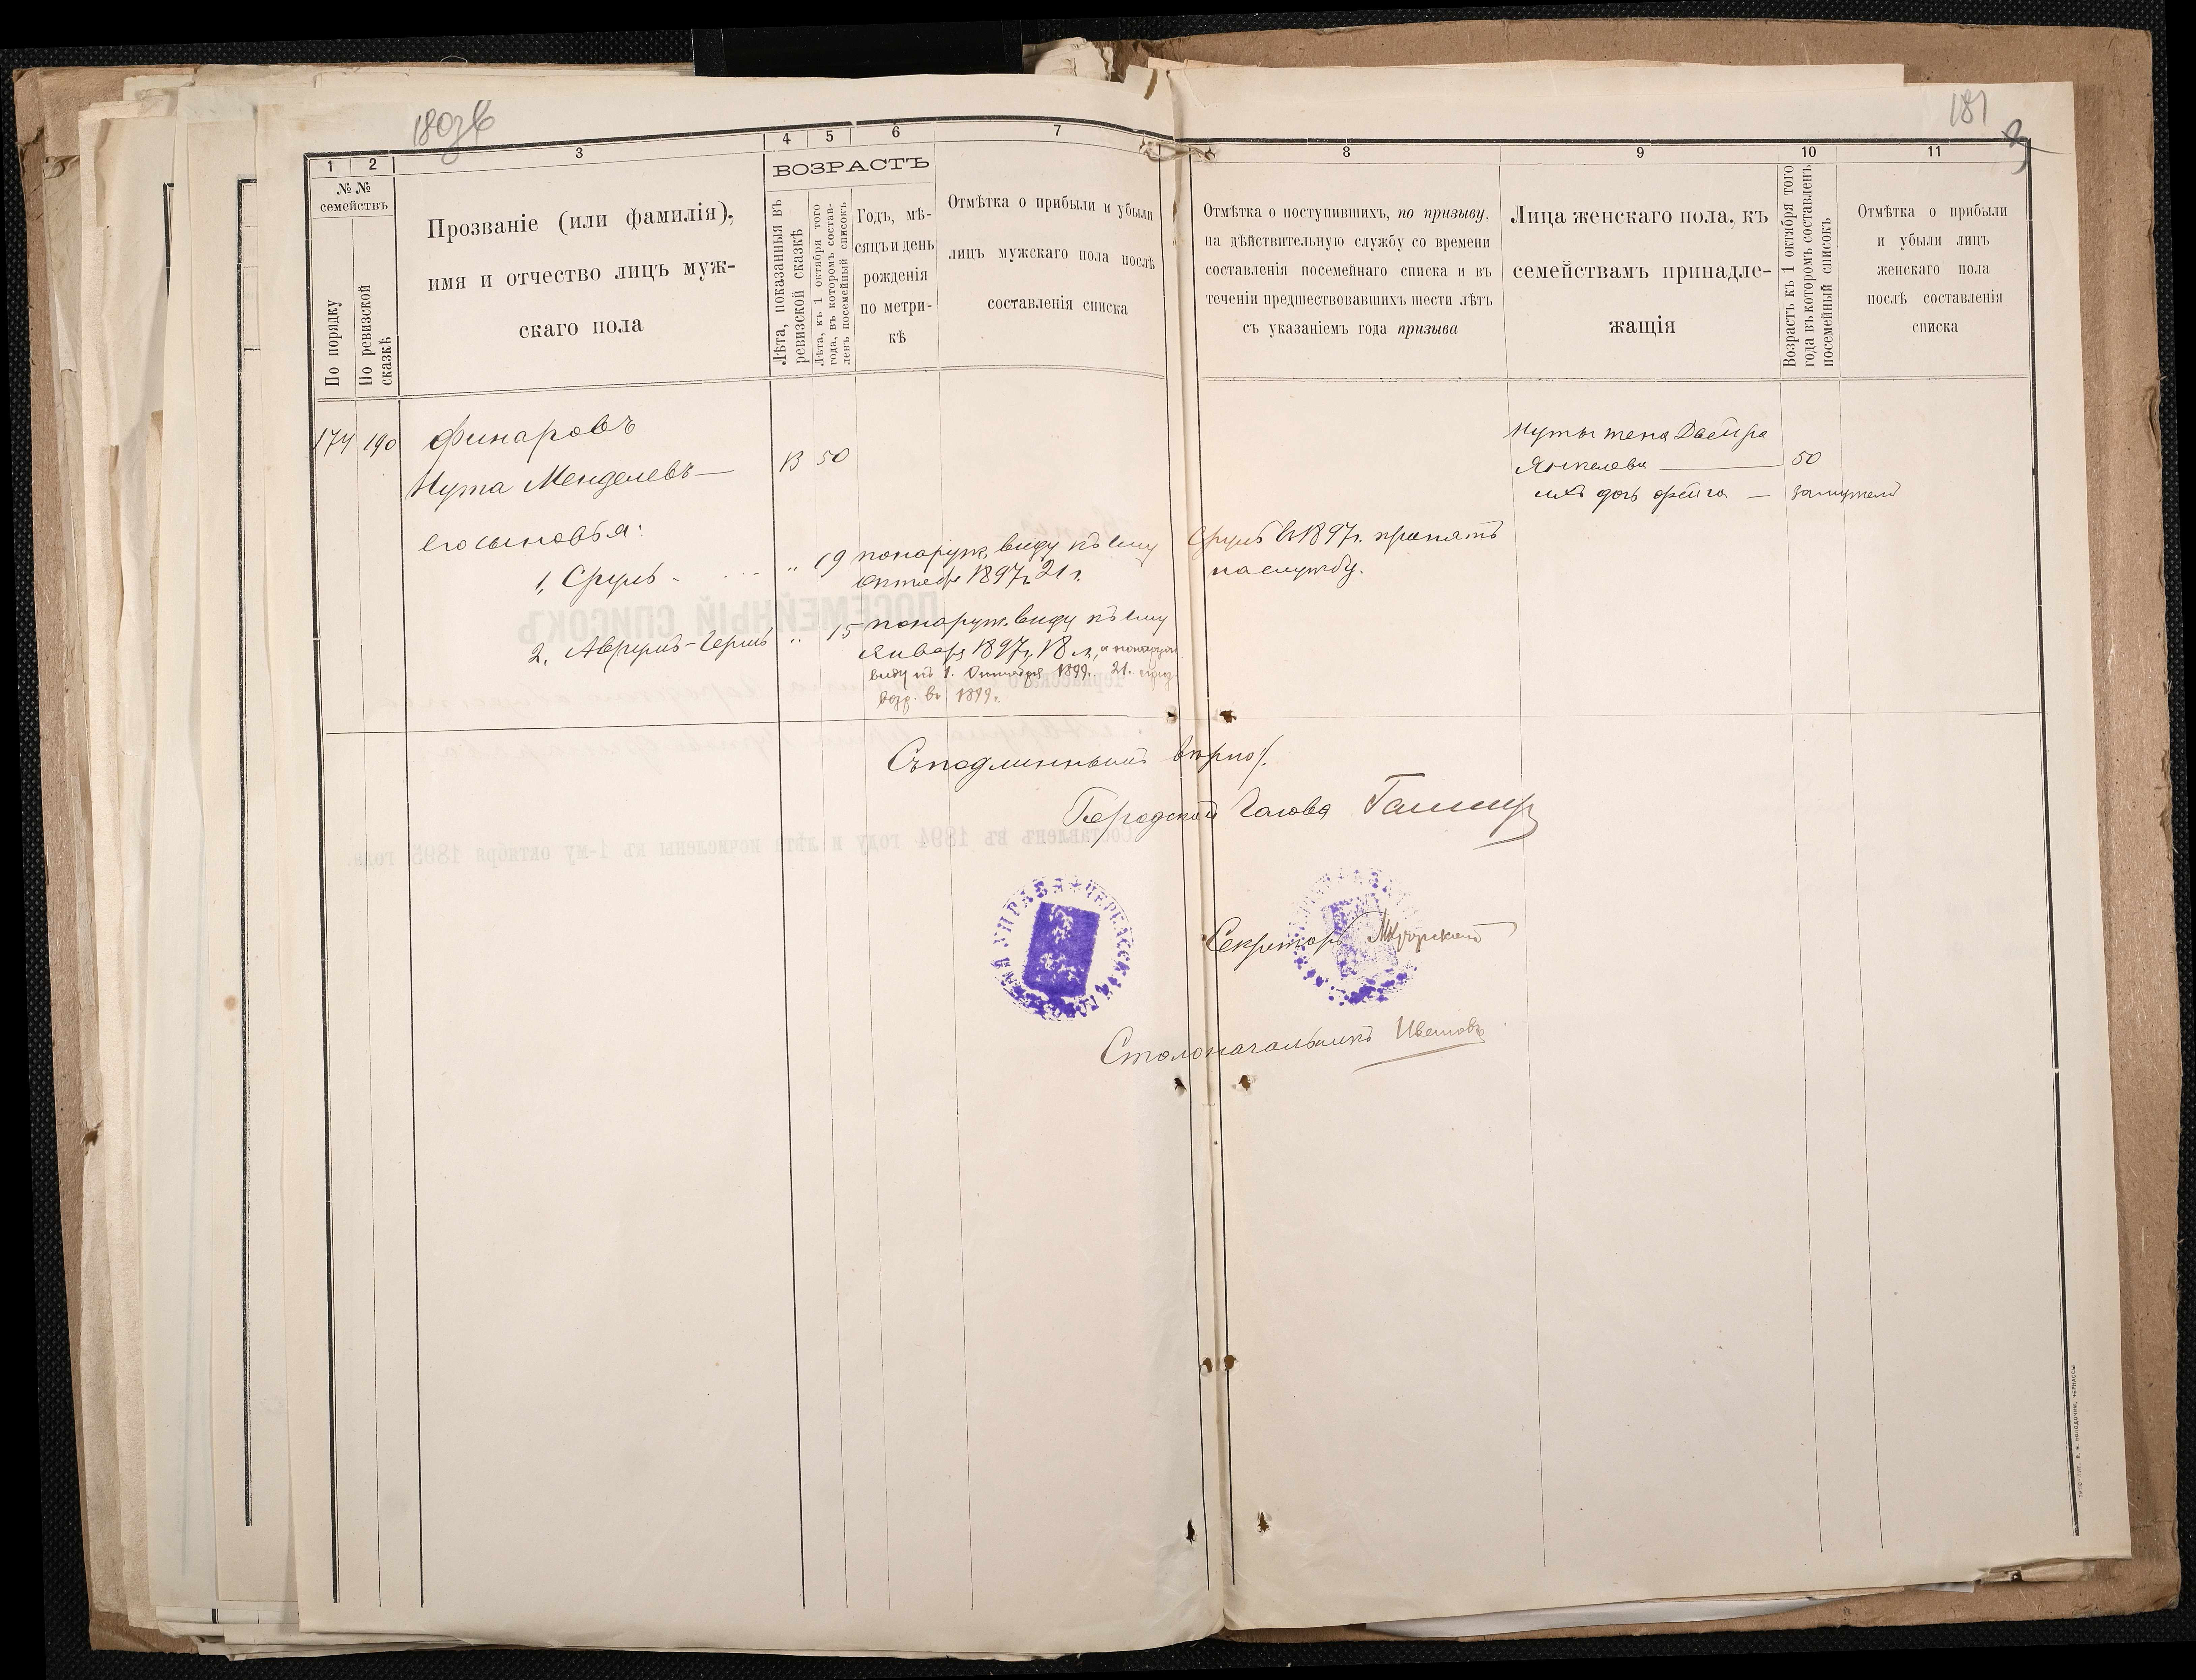 180об
181
3
1
2
3
4
5
6
7
8
9
10
11
№ №
семействъ
По порядку
По ревизской
сказкѣ
Прозваніе (или фамилія),
имя и отчество лицъ муж-
скаго пола
ВОЗРАСТЪ
Лѣта, показанныя въ
ревизской сказкѣ
Лѣта, къ 1 октября того
года, въ которомъ состав-
ленъ посемейный списокъ
Годъ, мѣ-
сяцъ и день
рожденія
по метри-
кѣ
Отмѣтка о прибыли и убыли
лицъ мужскаго пола послѣ
составленія списка
Отмѣтка о поступившихъ, по призыву,
на дѣйствительную службу со времени
составленія посемейнаго списка и въ
теченіи предшествовавшихъ шести лѣтъ
съ указаніемъ года призыва
Лица женскаго пола, къ
семействамъ принадле-
жащія
Возрастъ къ 1 октября того
года въ которомъ составленъ
посемейный списокъ
Отмѣтка о прибыли
и убыли лицъ
женскаго пола
послѣ составленія
списка
174 190 Финаровъ
Нута Менделевъ — 13 50
Нуты жена Двейра
Янкелева — 50
ихъ дочь Фейга — замужемъ
его сыновья:
1, Сруль - " 19 понаруж. виду къ 1му
Октября 1897 г. 21 г.
Сруль въ 1897 г. принятъ
на службу.
2, Аврумъ-Гершъ " 15 понаруж. виду къ 1му
Января 1897 г. 18 л., а понаруж.
виду къ 1. Октября 1899. 21. приз.
возр. въ 1899 г.
Съ подлиннымъ вѣрно:
Городской Голова
Секретарь
Столоначальникъ
УПРАВА ★ ЧЕРКАССКАЯ
ПОСЕМЕЙНЫЙ СПИСОКЪ
Составленъ въ 1894 году и лѣта исчислены къ 1-му октября 1895 года.